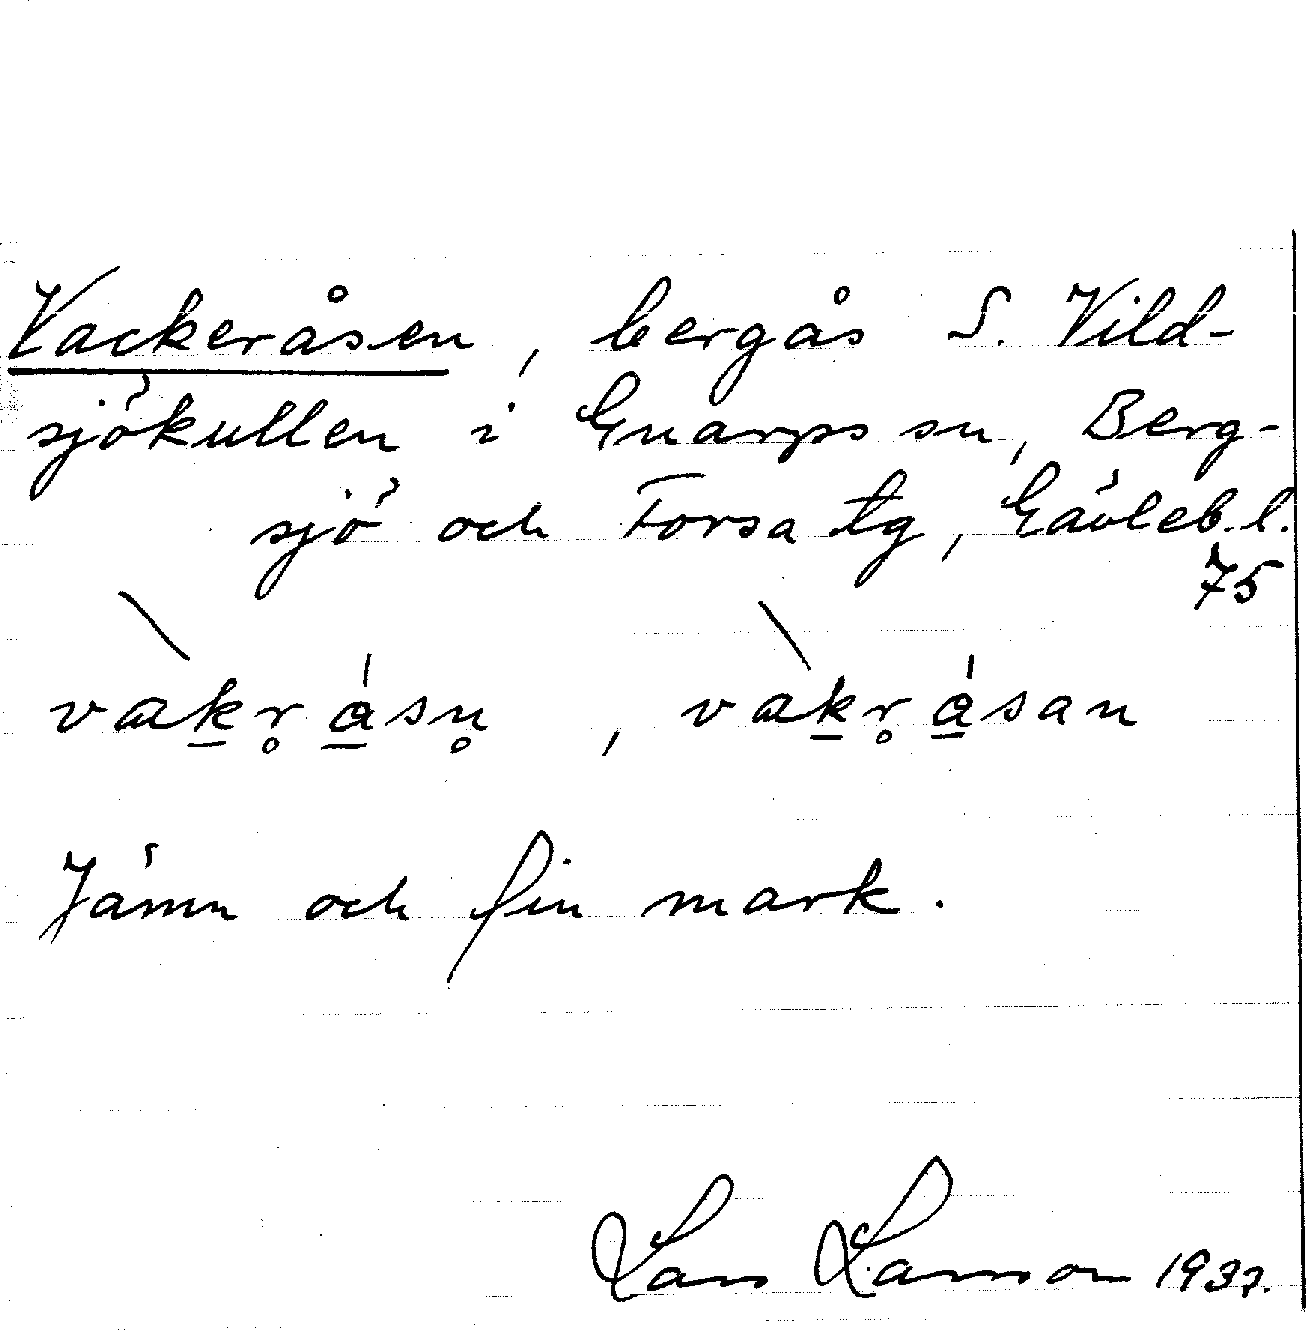 Vackeråsen, bergås S. Vild-
sjökullen i Gnarps sn, Berg-
sjö och Forsa tg, Gävleb. l.
75
vakr̥åsn̥, vakr̥åsan
Jämn och fin mark.
Lars Larsson 1937.